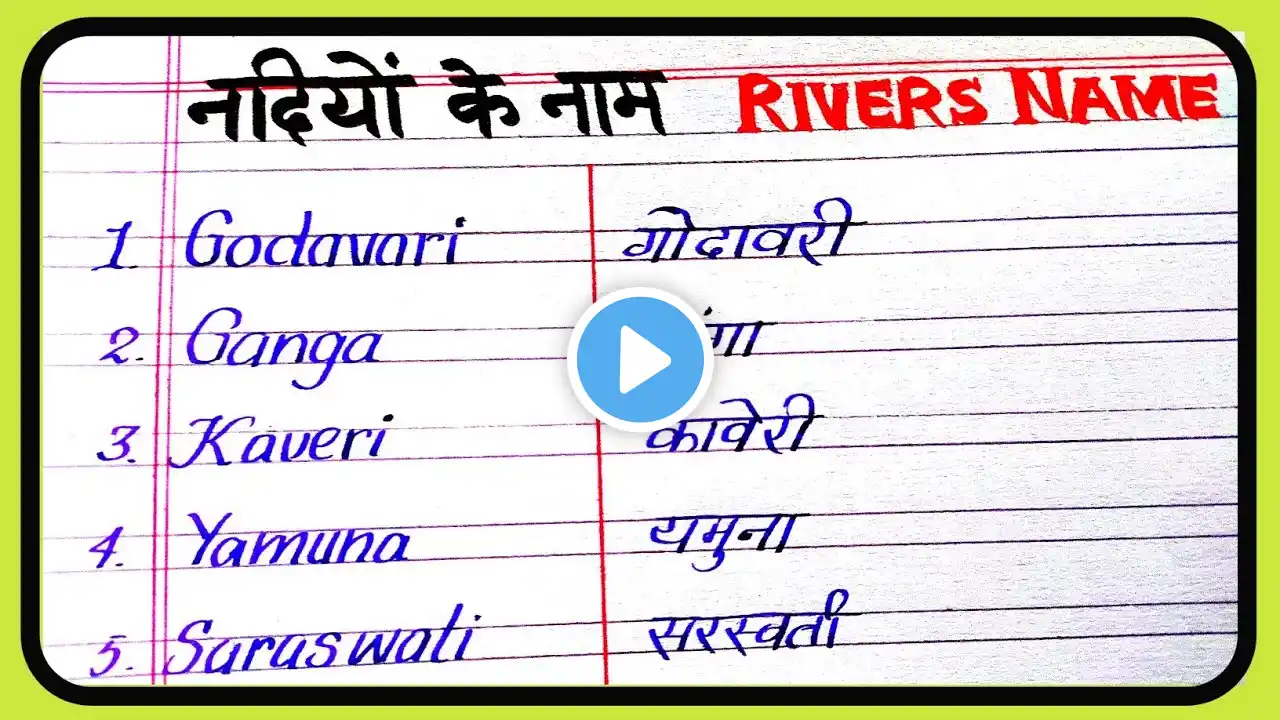 नदियों के नाम RIVERS NAME
1. Godavari गोदावरी
2. Ganga
3. Kaveri कावेरी
4. Yamuna यमुना
5. Saraswati सरस्वती